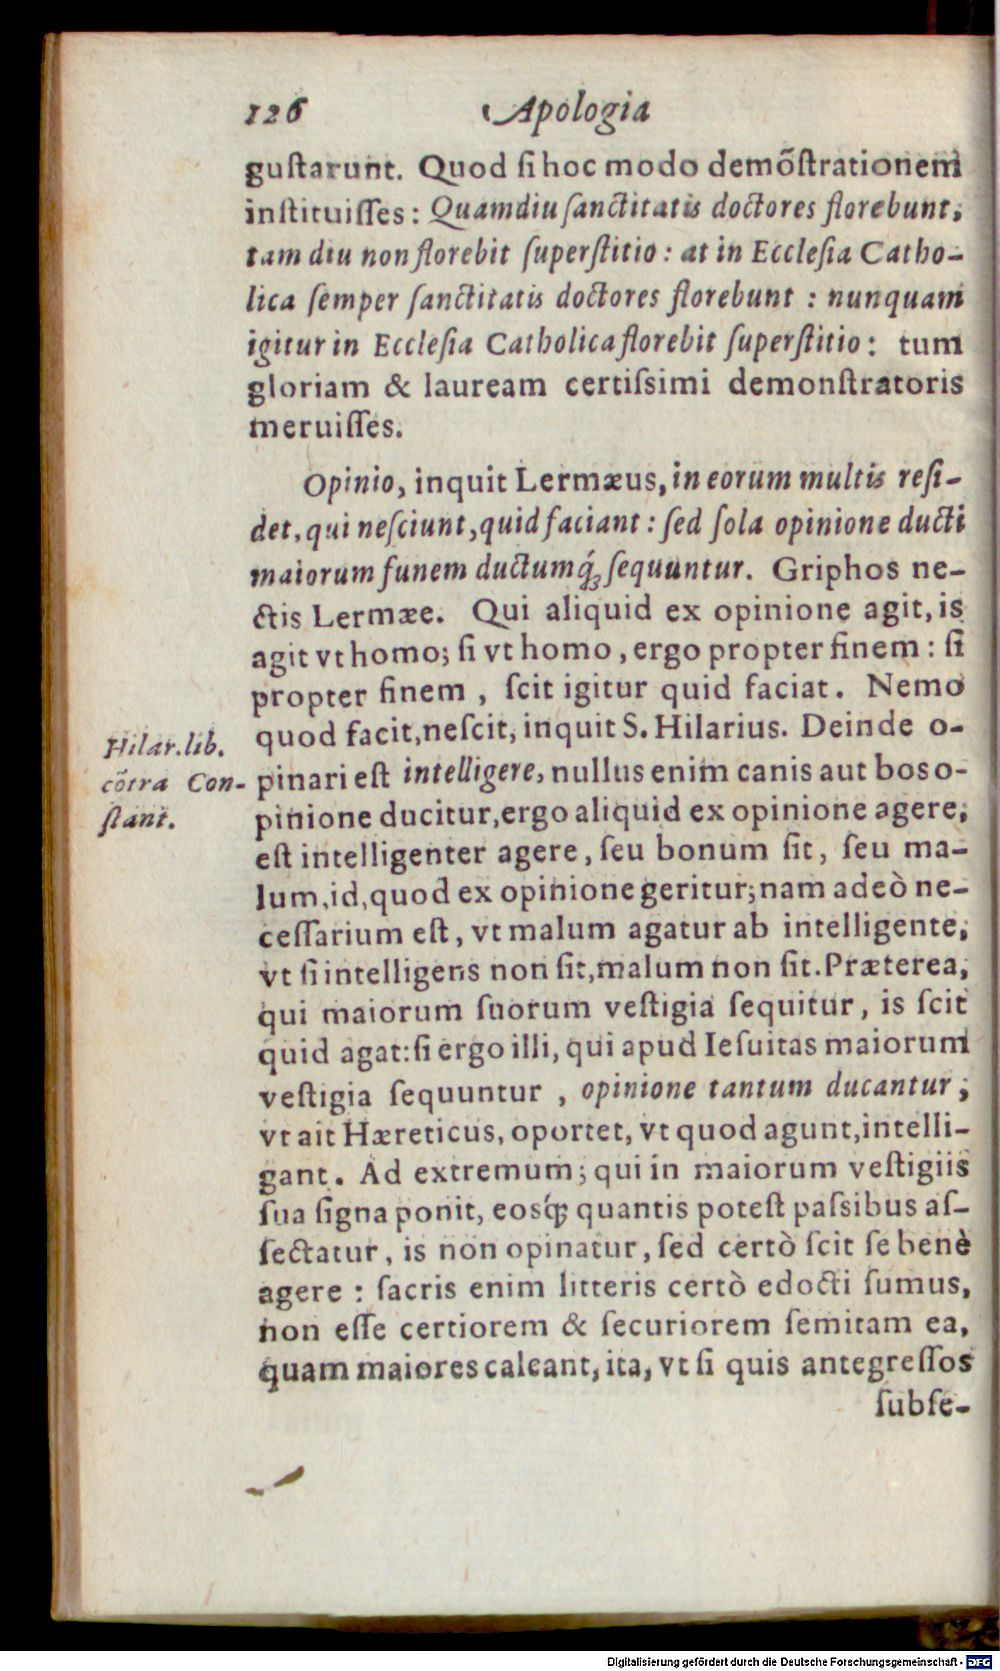 126 Apologia
guſtarunt. Quod ſi hoc modo demõſtrationem
inſtituiſſes: Quamdiu ſanctitatis doctores florebunt,
tam diu non florebit ſuperſtitio: at in Eccleſia Catho-
lica ſemper ſanctitatis doctores florebunt: nunquam
igitur in Eccleſia Catholica florebit ſuperſtitio: tum
gloriam & lauream certiſsimi demonſtratoris
meruiſſes.
Opinio, inquit Lermæus, in eorum multis reſi-
det, qui neſciunt, quid faciant: ſed ſola opinione ducti
maiorum funem ductumq́; ſequuntur. Griphos ne-
ctis Lermæe. Qui aliquid ex opinione agit, is
agit vt homo; ſi vt homo, ergo propter finem: ſi
propter finem, ſcit igitur quid faciat. Nemo
quod facit, neſcit, inquit S. Hilarius. Deinde o-
Hilar. lib.
cõtra Con-
ſtant.
pinari eſt intelligere, nullus enim canis aut bos o-
pinione ducitur, ergo aliquid ex opinione agere,
eſt intelligenter agere, ſeu bonum ſit, ſeu ma-
lum, id, quod ex opinione geritur; nam adeò ne-
ceſſarium eſt, vt malum agatur ab intelligente,
vt ſi intelligens non ſit, malum non ſit. Præterea,
qui maiorum ſuorum veſtigia ſequitur, is ſcit
quid agat: ſi ergo illi, qui apud Ieſuitas maiorum
veſtigia ſequuntur, opinione tantum ducantur,
vt ait Hæreticus, oportet, vt quod agunt, intelli-
gant. Ad extremum; qui in maiorum veſtigiis
ſua ſigna ponit, eosq́; quantis poteſt paſsibus aſ-
ſectatur, is non opinatur, ſed certò ſcit ſe benè
agere: ſacris enim litteris certò edocti ſumus,
non eſſe certiorem & ſecuriorem ſemitam ea,
quam maiores calcant, ita, vt ſi quis antegreſſos
ſubſe-
Digitalisierung gefördert durch die Deutsche Forschungsgemeinschaft - DFG